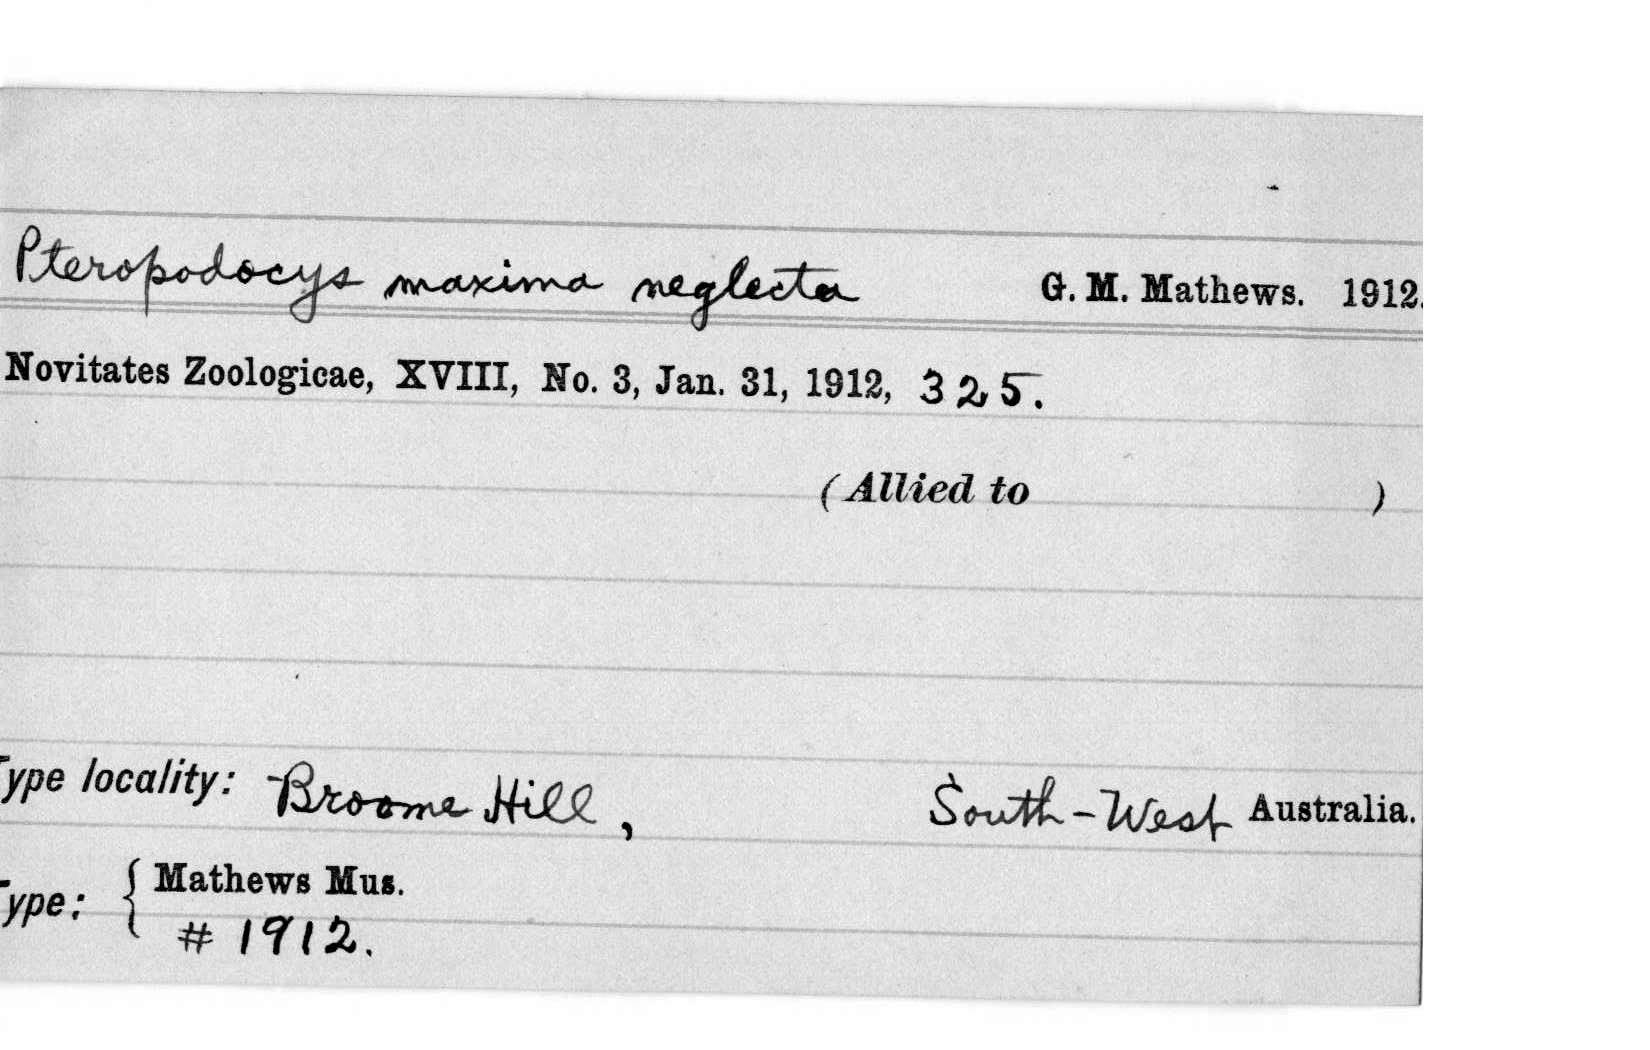 Pteropodocys maxima neglecta G. M. Mathews. 1912.
Novitates Zoologicae, XVIII, No. 3, Jan. 31, 1912, 325.
(Allied to )
Type locality: Broome Hill, South-West Australia.
Type: { Mathews Mus.
# 1912.